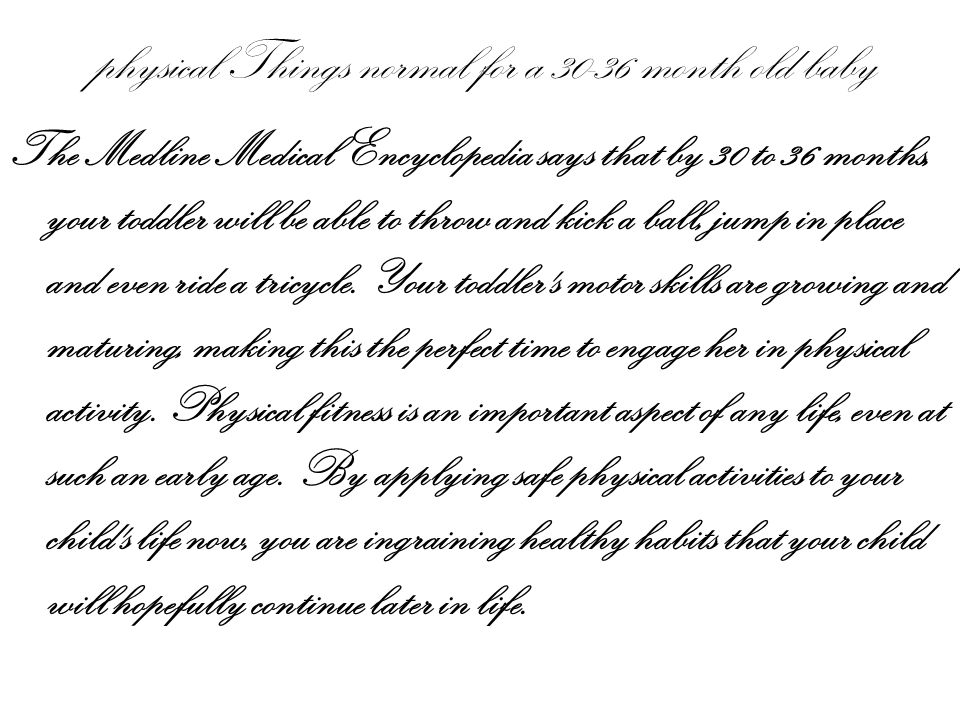 physical Things normal for a 30-36 month old baby
The Medline Medical Encyclopedia says that by 30 to 36 months,
your toddler will be able to throw and kick a ball, jump in place
and even ride a tricycle. Your toddler's motor skills are growing and
maturing, making this the perfect time to engage her in physical
activity. Physical fitness is an important aspect of any life, even at
such an early age. By applying safe physical activities to your
child's life now, you are ingraining healthy habits that your child
will hopefully continue later in life.